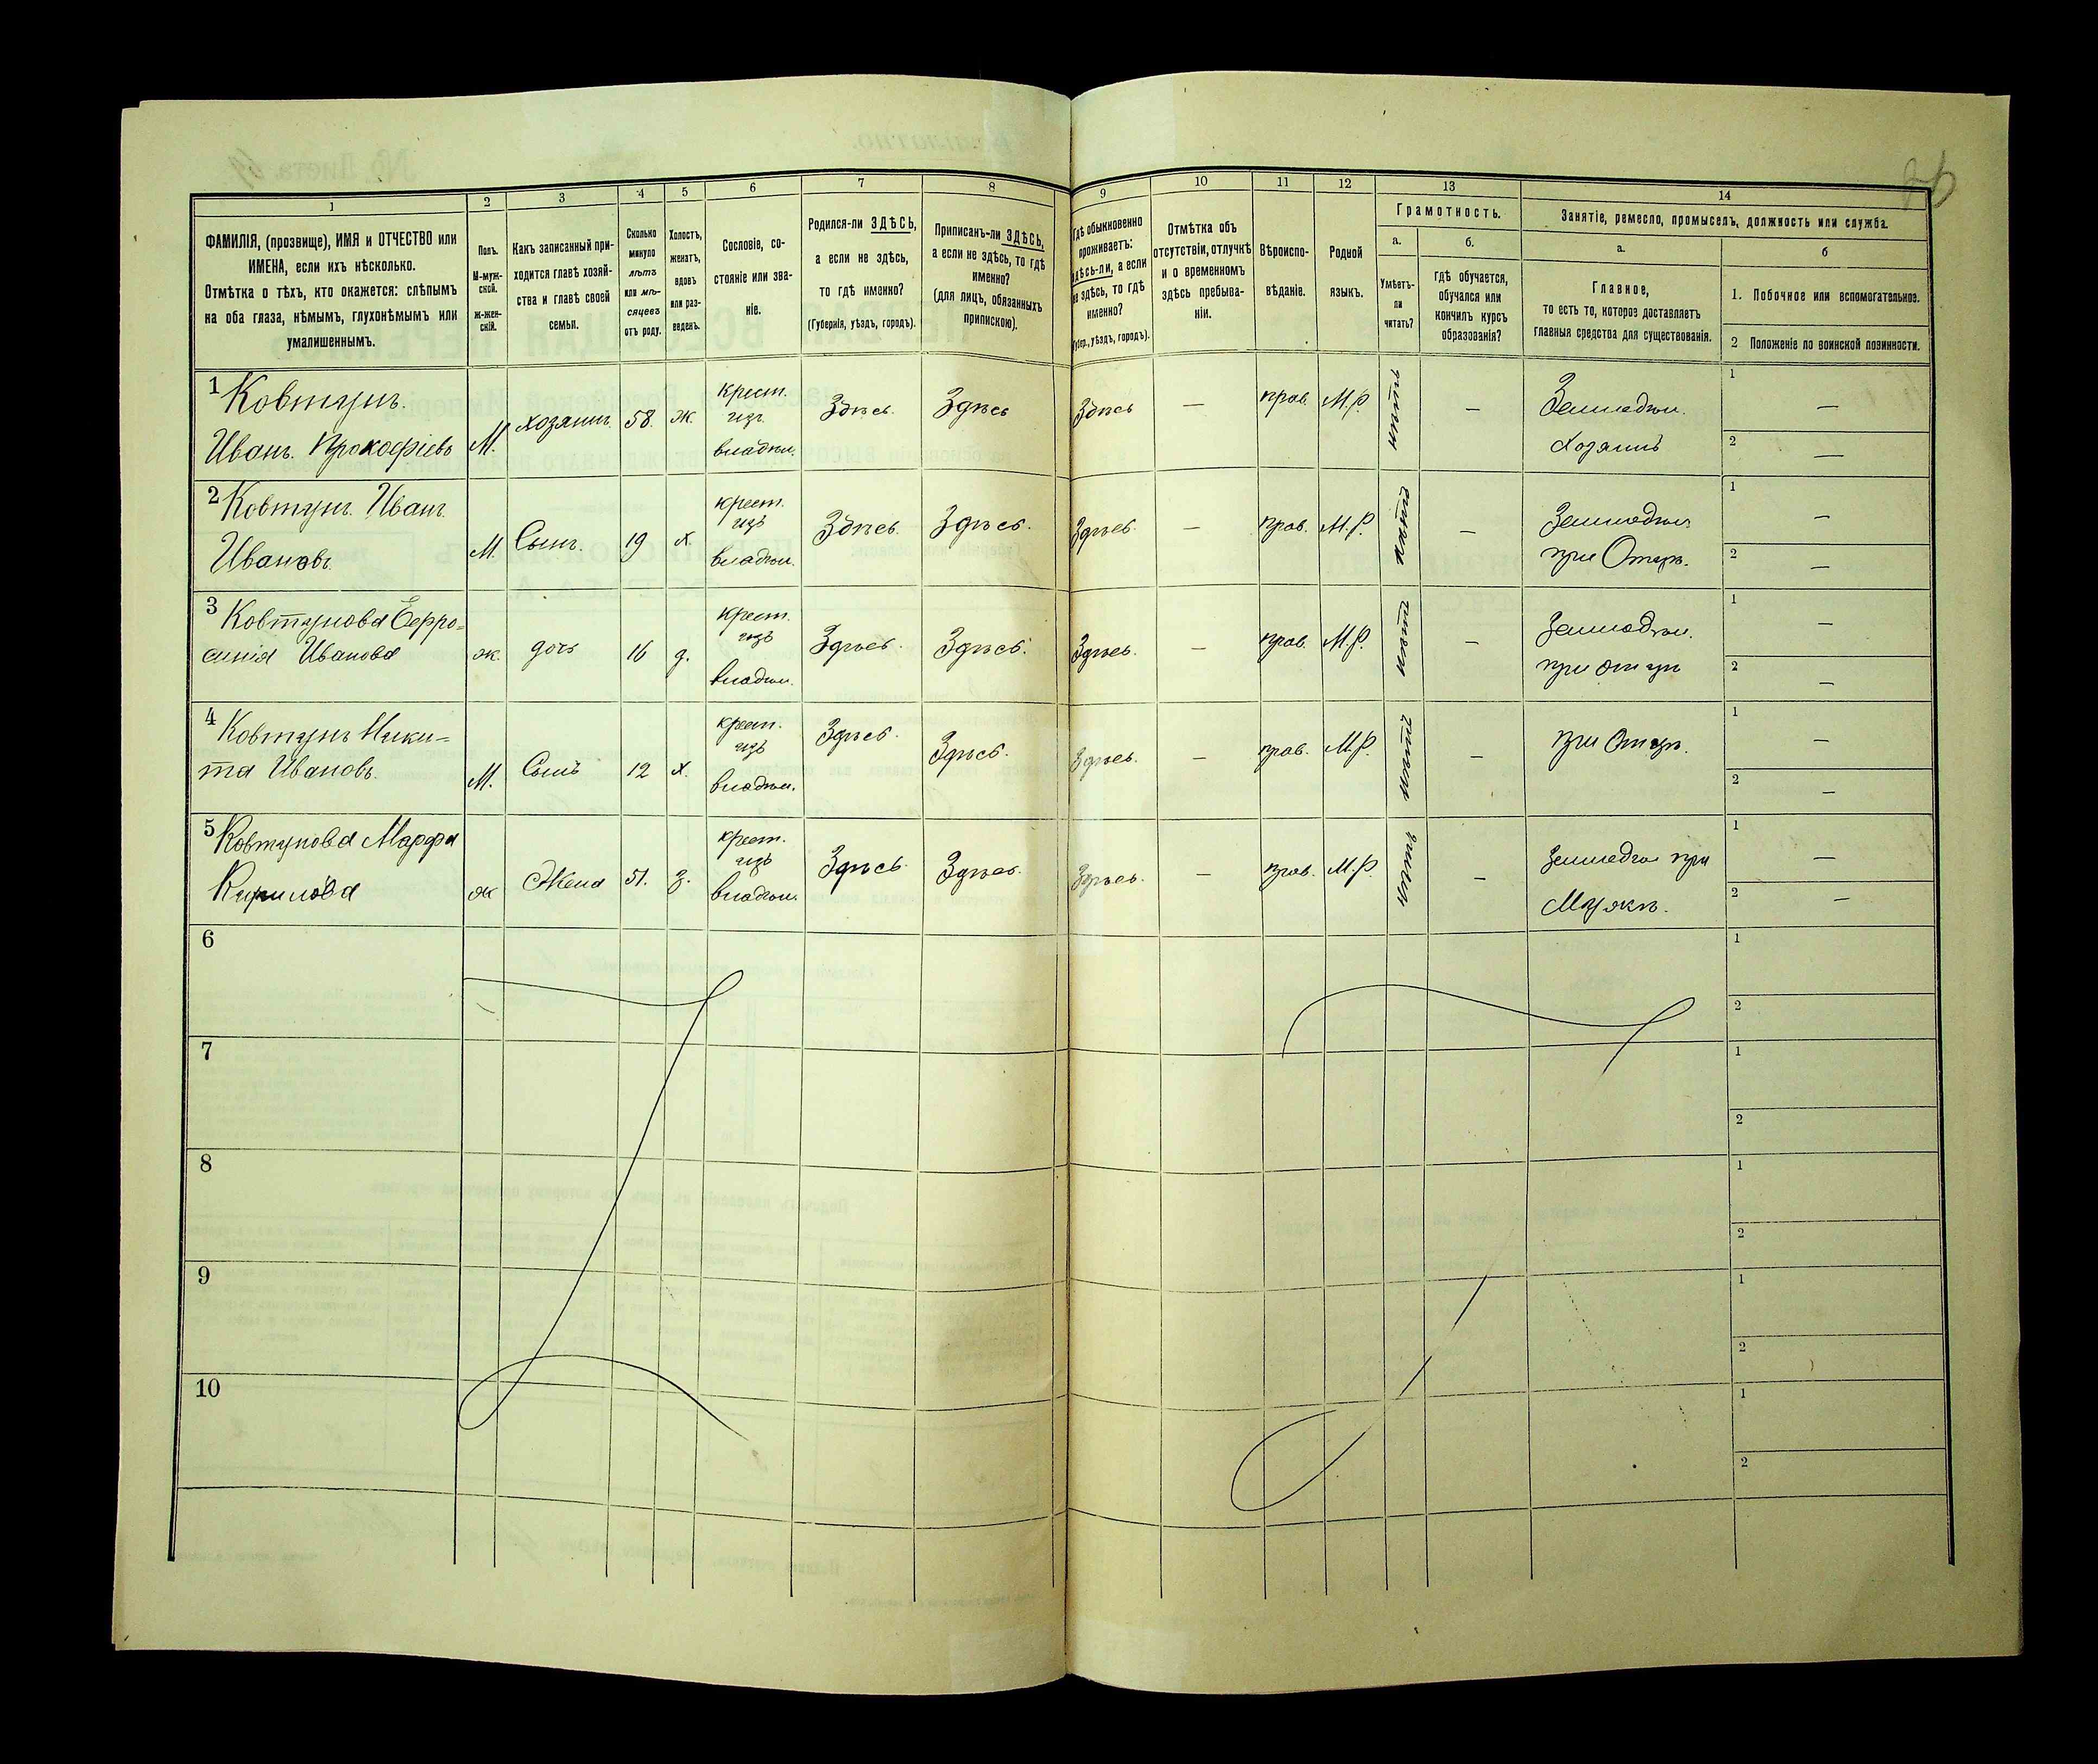 1 2 3 4 5 6 7 8 9 10 11 12 13 14
ФАМИЛІЯ, (прозвище), ИМЯ и ОТЧЕСТВО или
ИМЕНА, если ихъ нѣсколько.
Отмѣтка о тѣхъ, кто окажется: слѣпымъ
на оба глаза, нѣмымъ, глухонѣмымъ или
умалишеннымъ.
Полъ.
М-муж-
ской.
Ж-жен-
скій.
Какъ записанный при-
ходится главѣ хозяй-
ства и главѣ своей
семьи.
Сколько
минуло
лѣтъ
или мѣ-
сяцевъ
отъ роду.
Холостъ,
женатъ,
вдовъ
или раз-
веденъ.
Сословіе, со-
стояніе или зва-
ніе.
Родился-ли ЗДѢСЬ,
а если не здѣсь,
то гдѣ именно?
(Губернія, уѣздъ, городъ).
Приписанъ-ли ЗДѢСЬ,
а если не здѣсь, то гдѣ
именно?
(для лицъ, обязанныхъ
припискою).
Гдѣ обыкновенно
проживаетъ:
здѣсь-ли, а если
не здѣсь, то гдѣ
именно?
(Губер., уѣздъ, городъ).
Отмѣтка объ
отсутствіи, отлучкѣ
и о временномъ
здѣсь пребыва-
ніи.
Вѣроиспо-
вѣданіе.
Родной
языкъ.
Грамотность.
а.
Умѣетъ-
ли
читать?
б.
гдѣ обучается,
обучался или
кончилъ курсъ
образованія?
Занятіе, ремесло, промыселъ, должность или служба.
а.
Главное,
то есть то, которое доставляетъ
главныя средства для существованія.
б
1. Побочное или вспомогательное.
2 Положеніе по воинской повинности.
1 Ковтунъ.
Иванъ. Прокофіевъ
М.
хозяинъ.
58.
ж.
крест.
изъ
владѣл.
Здѣсь.
Здѣсь
Здѣсь
—
прав.
М.Р.
нѣтъ
—
Земледѣл.
Хозяинъ
1 —
2 —
2 Ковтунъ. Иванъ.
Ивановъ.
М.
Сынъ.
19
х.
крест.
изъ
владѣл.
Здѣсь.
Здѣсь.
Здѣсь.
—
прав.
М.Р.
нѣтъ
—
Земледѣл.
при Отцѣ.
1 —
2 —
3 Ковтунова Ефро-
синія Иванова
ж.
дочь
16
д.
крест.
изъ
владѣл.
Здѣсь.
Здѣсь.
Здѣсь.
—
прав.
М.Р.
нѣтъ
—
Земледѣл.
при отцѣ
1 —
2 —
4 Ковтунъ Ники-
та Ивановъ.
М.
Сынъ
12
х.
крест.
изъ
владѣл.
Здѣсь.
Здѣсь.
Здѣсь.
—
прав.
М.Р.
нѣтъ
—
при Отцѣ.
1 —
2 —
5 Ковтунова Марфа
Кирилова
ж
Жена
51.
з.
крест.
изъ
владѣл.
Здѣсь.
Здѣсь.
Здѣсь.
—
прав.
М.Р.
нѣтъ
—
Земледѣл при
Мужѣ.
1 —
2 —
6
1
2
7
1
2
8
1
2
9
1
2
10
1
2